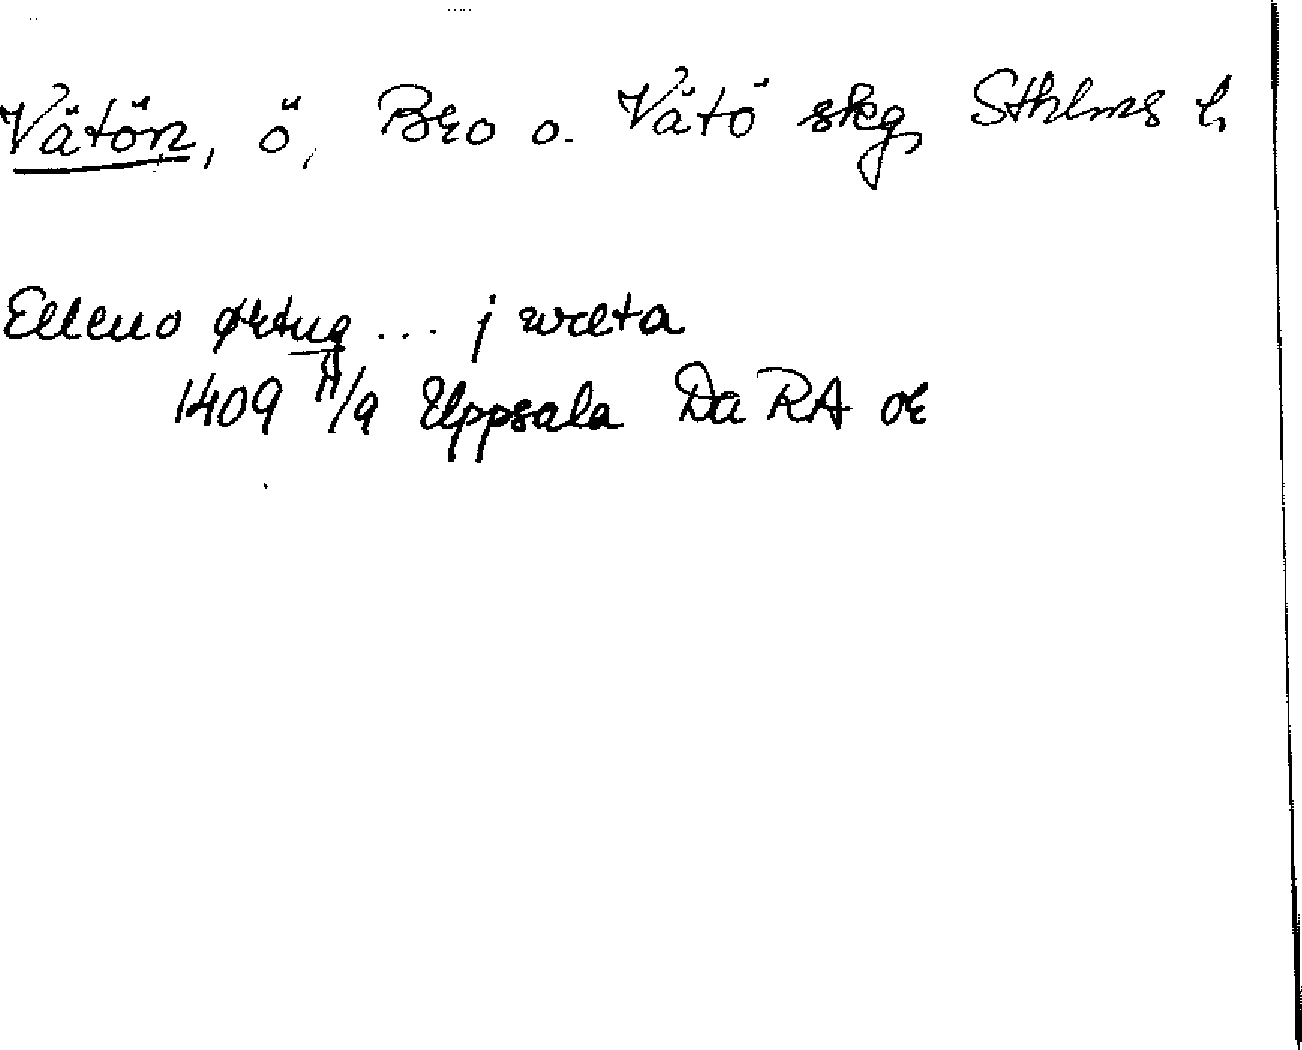 Vätön, ö, Bro o. Vätö skg, Sthlms l.
Elleuo ørtug ... j wæta
1409 11/9 Uppsala Da RA or